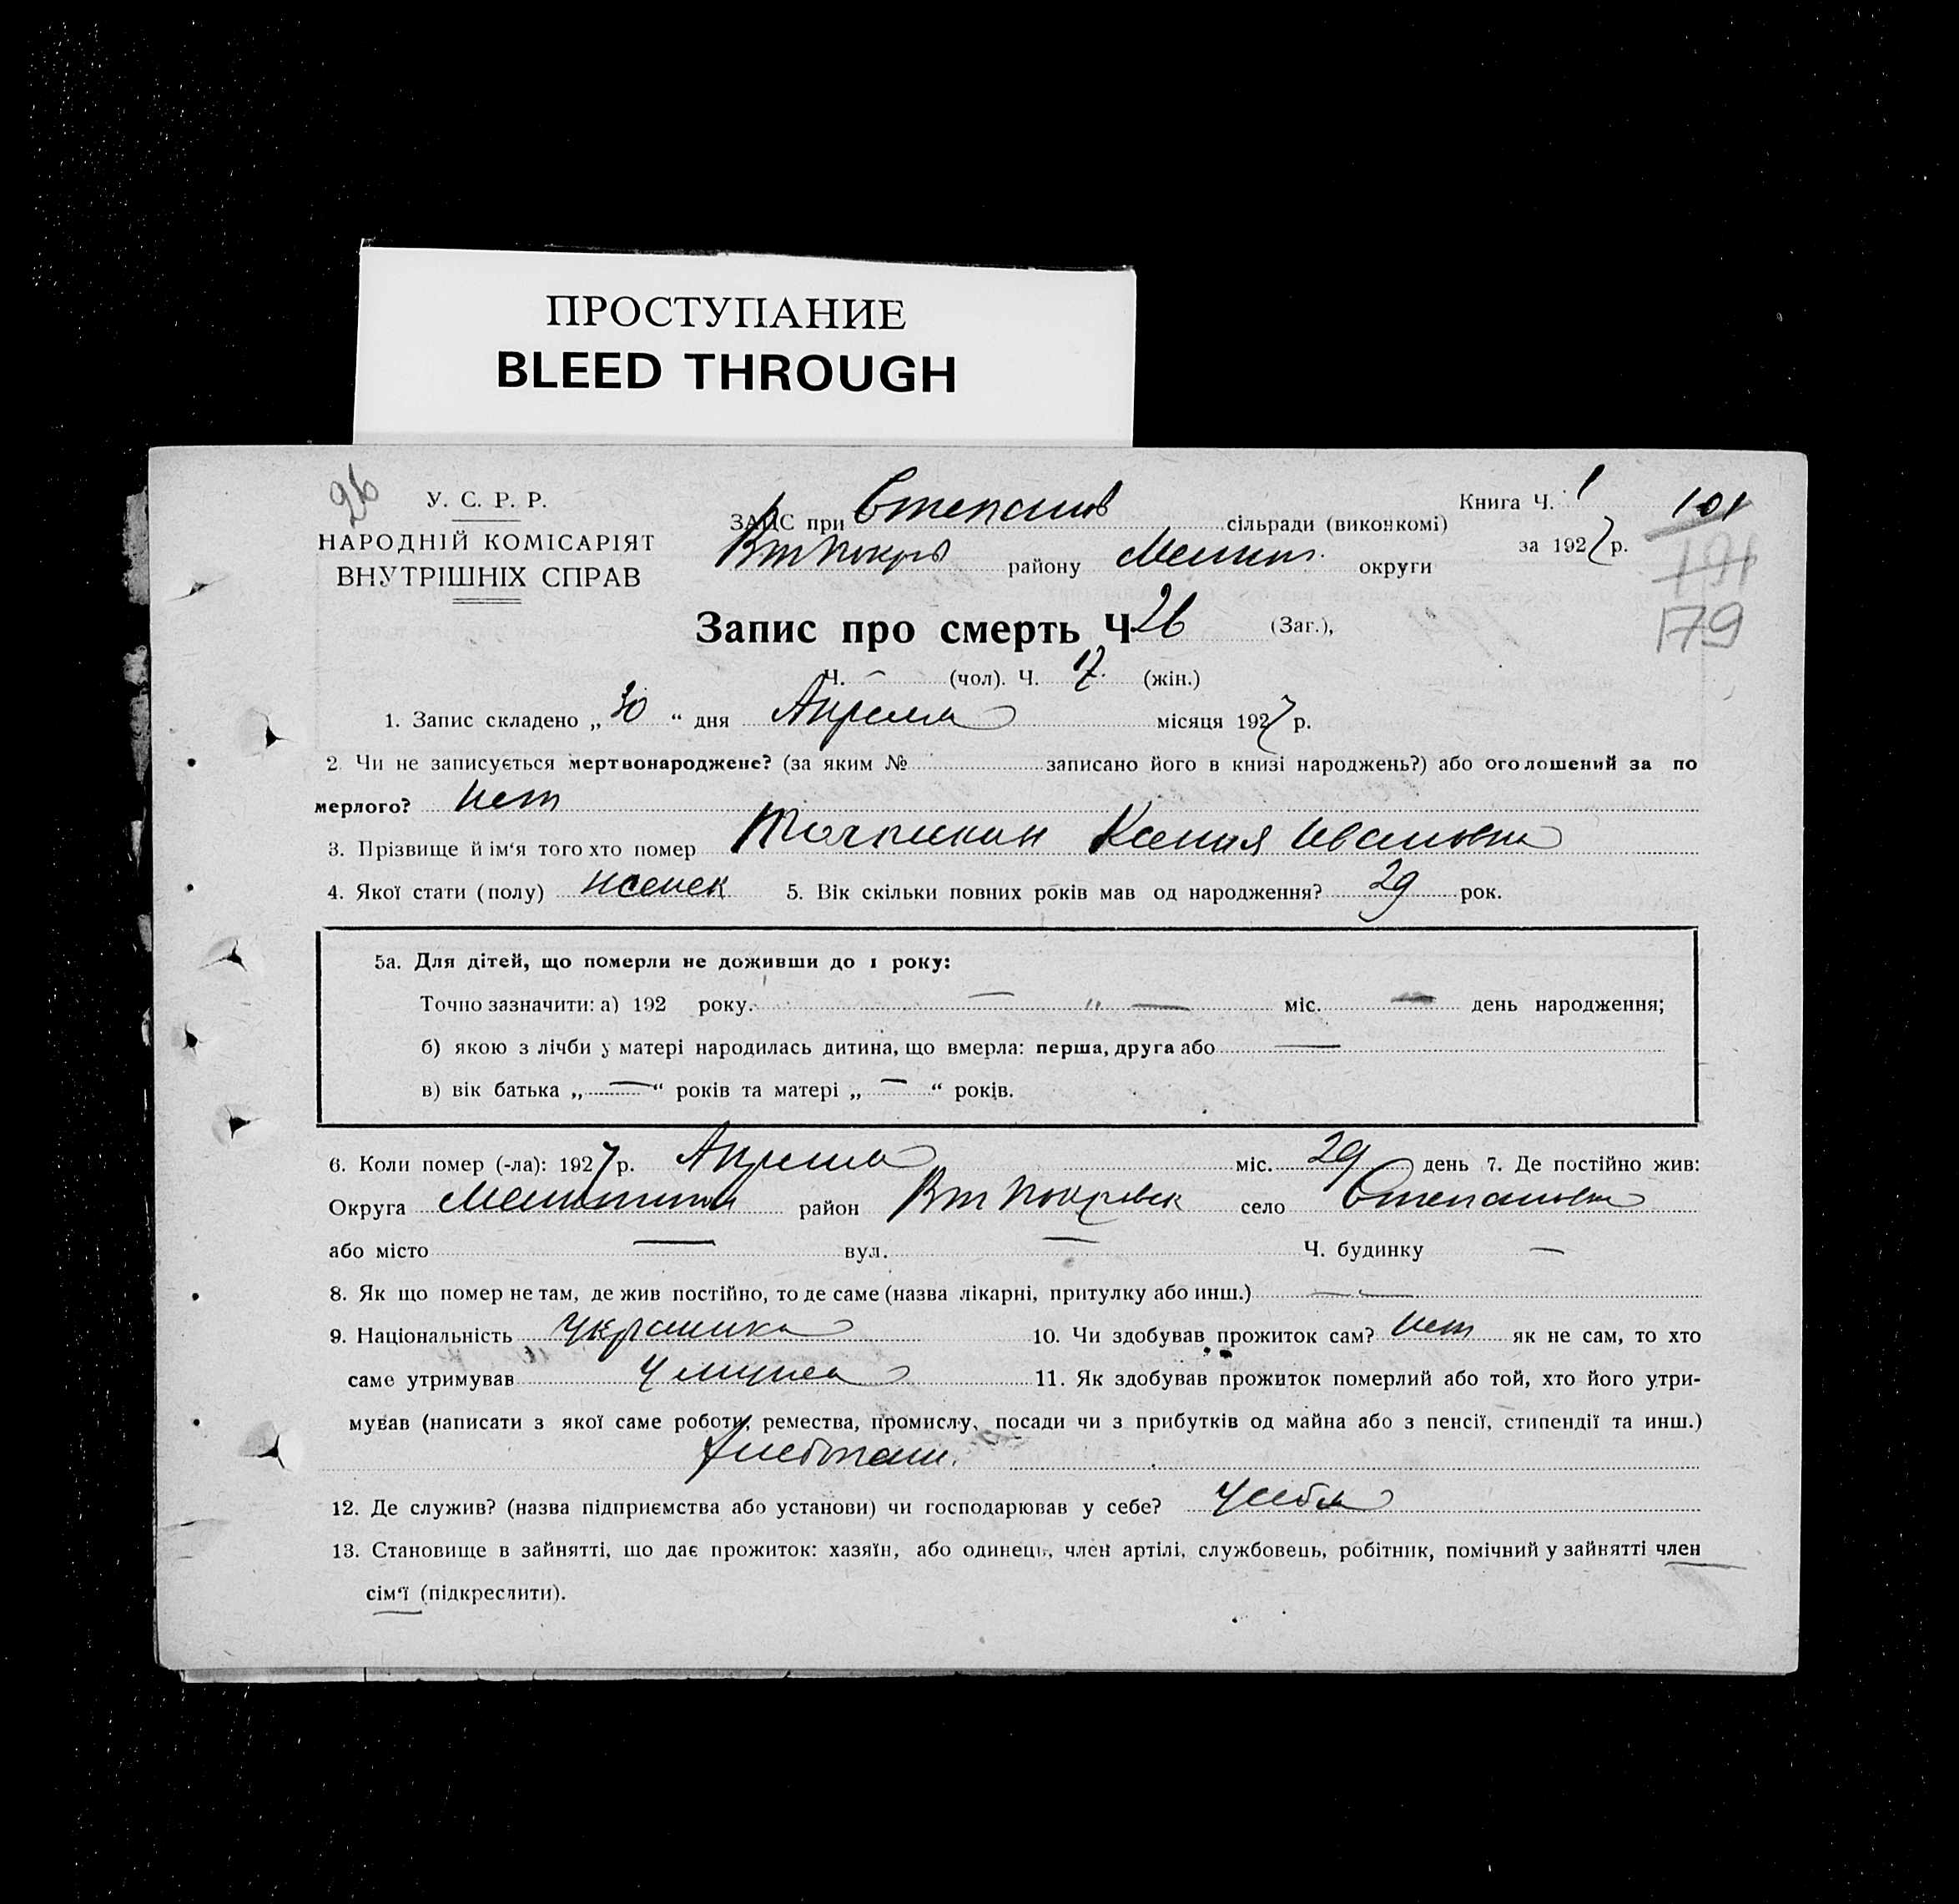 ПРОСТУПАНИЕ
BLEED THROUGH
26
У. С. Р. Р.
НАРОДНІЙ КОМІСАРІЯТ
ВНУТРІШНІХ СПРАВ
ЗАГС при Степанов сільради (виконкомі)
Вт Покров району Мелит. округи
Книга Ч. 1
за 1927 р.
101
191
179
Запис про смерть Ч 26 (Заг.),
Ч. — (чол). Ч. 17. (жін.)
1. Запис складено „ 30 “ дня Апреля місяця 1927 р.
2. Чи не записується мертвонароджене? (за яким № записано його в книзі народжень?) або оголошений за по
мерлого? нет
3. Прізвище й ім'я того хто помер Ксения Ивановна
4. Якої стати (полу) женск 5. Вік скільки повних років мав од народження? 29 рок.
5а. Для дітей, що померли не доживши до 1 року:
Точно зазначити: а) 192 року. — „ — міс. — день народження;
б) якою з лічби у матері народилась дитина, що вмерла: перша, друга або —
в) вік батька „ — “ років та матері „ — “ років.
6. Коли помер (-ла): 1927 р. Апреля міс. 29 день 7. Де постійно жив:
Округа район Вт Покровск село Степановка
або місто — вул. — Ч. будинку —
8. Як що померне там, де жив постійно, то де саме (назва лікарні, притулку або инш.) — —
9. Національність Украинка 10. Чи здобував прожиток сам? нет як не сам, то хто
саме утримував У мужа 11. Як здобував прожиток померлий або той, хто його утри-
мував (написати з якої саме роботи, ремества, промислу, посади чи з прибутків од майна або з пенсії, стипендії та инш.)
Хлебопаш.
12. Де служив? (назва підприємства або установи) чи господарював у себе? У себя
13. Становище в зайнятті, що дає прожиток: хазяїн, або одинець, член артілі, службовець, робітник, помічний у зайнятті член
сім'ї (підкреслити).